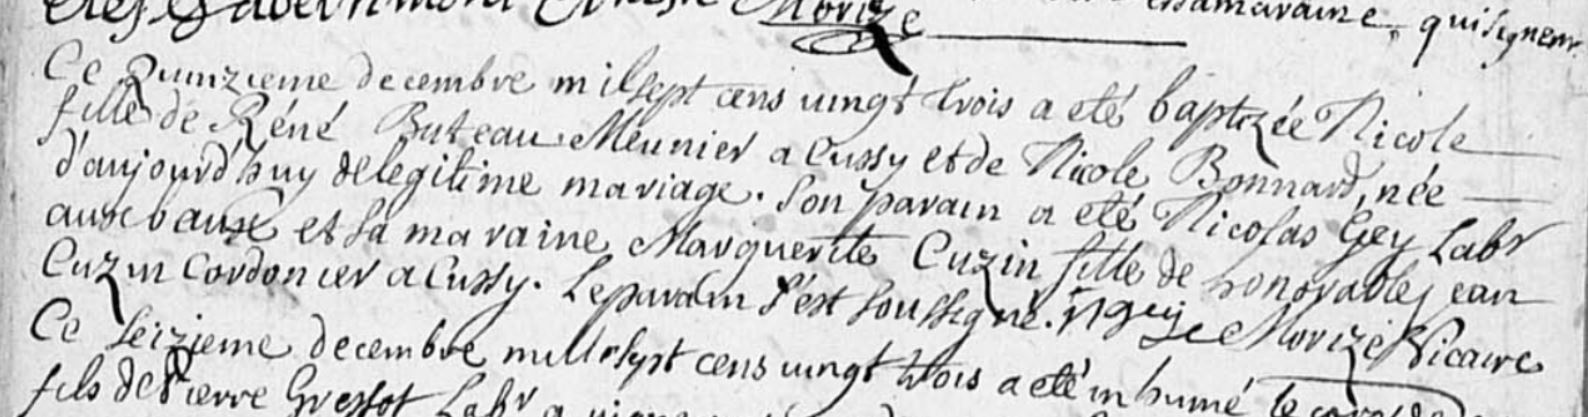 Morize maraine, qui signent
Ce Quinzieme decembre mil sept cens vingt trois a eté baptizée Nicole
fille de Réné Buteau Meunier a Cussy et de Nicole Bonnard, née
d'aujourd'huy de legitime mariage. Son parain a eté Nicolas Gey Labr
aux baux et sa maraine Marguerite Cuzin fille de honorable jean
Cuzin Cordonier a Cussy. Le parain s'est soussigné. N gey Morize Vicaire
Ce seizieme decembre mille sept cens vingt trois a eté inhumé le corps
fils de Pierre Gressot Labr a